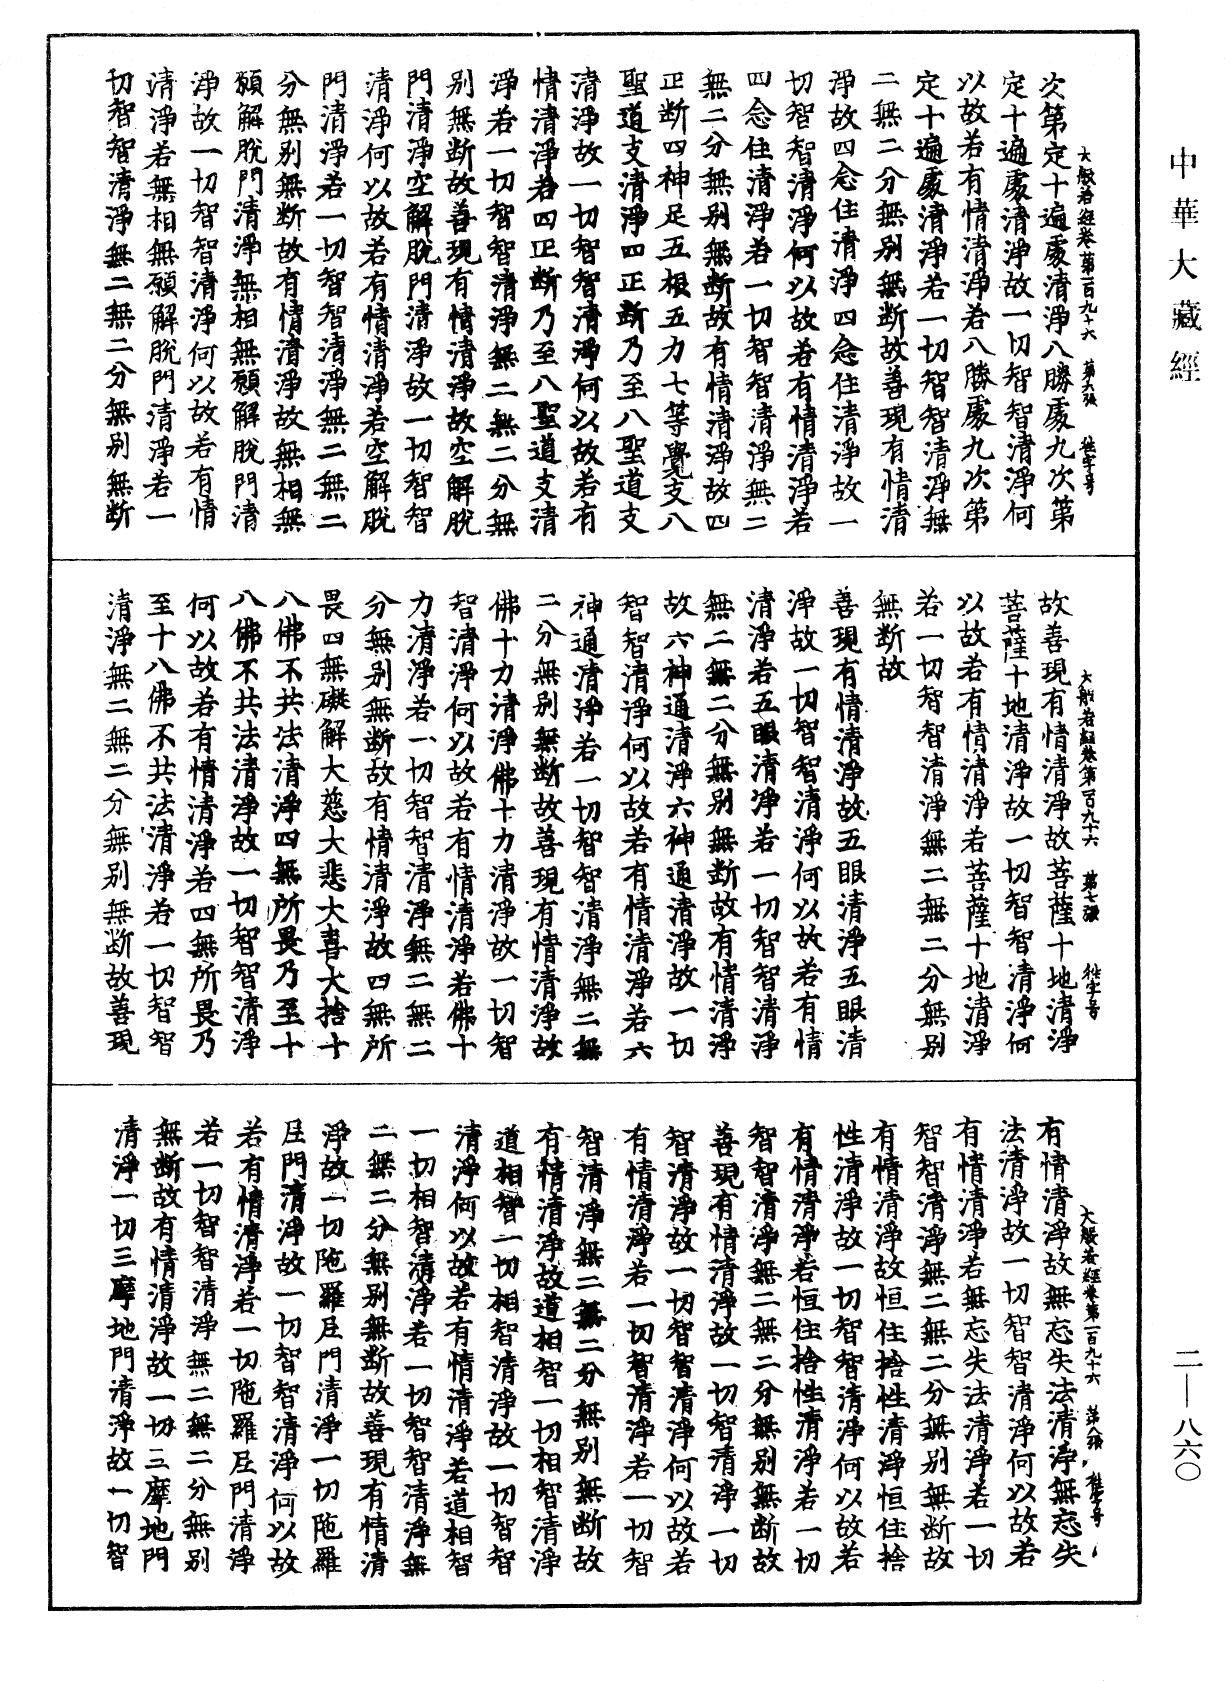 中華大藏經
大般若經卷第一百九十六　第六張　往字号
次第定十遍處清淨八勝處九次第
定十遍處清淨故一切智智清淨何
以故若有情清淨若八勝處九次第
定十遍處清淨若一切智智清淨無
二無二分無別無斷故善現有情清
淨故四念住清淨四念住清淨故一
切智智清淨何以故若有情清淨若
四念住清淨若一切智智清淨無二
無二分無別無斷故有情清淨故四
正斷四神足五根五力七等覺支八
聖道支清淨四正斷乃至八聖道支
清淨故一切智智清淨何以故若有
情清淨若四正斷乃至八聖道支清
淨若一切智智清淨無二無二分無
別無斷故善現有情清淨故空解脫
門清淨空解脫門清淨故一切智智
清淨何以故若有情清淨若空解脫
門清淨若一切智智清淨無二無二
分無別無斷故有情清淨故無相無
願解脫門清淨無相無願解脫門清
淨故一切智智清淨何以故若有情
清淨若無相無願解脫門清淨若一
切智智清淨無二無二分無別無斷
大般若經卷第一百九十六　第七張　往字号
故善現有情清淨故菩薩十地清淨
菩薩十地清淨故一切智智清淨何
以故若有情清淨若菩薩十地清淨
若一切智智清淨無二無二分無別
無斷故
善現有情清淨故五眼清淨五眼清
淨故一切智智清淨何以故若有情
清淨若五眼清淨若一切智智清淨
無二無二分無別無斷故有情清淨
故六神通清淨六神通清淨故一切
智智清淨何以故若有情清淨若六
神通清淨若一切智智清淨無二無
二分無別無斷故善現有情清淨故
佛十力清淨佛十力清淨故一切智
智清淨何以故若有情清淨若佛十
力清淨若一切智智清淨無二無二
分無別無斷故有情清淨故四無所
畏四無礙解大慈大悲大喜大捨十
八佛不共法清淨四無所畏乃至十
八佛不共法清淨故一切智智清淨
何以故若有情清淨若四無所畏乃
至十八佛不共法清淨若一切智智
清淨無二無二分無別無斷故善現
大般若經卷第一百九十六　第八張　往字号
有情清淨故無忘失法清淨無忘失
法清淨故一切智智清淨何以故若
有情清淨若無忘失法清淨若一切
智智清淨無二無二分無別無斷故
有情清淨故恒住捨性清淨恒住捨
性清淨故一切智智清淨何以故若
有情清淨若恒住捨性清淨若一切
智智清淨無二無二分無別無斷故
善現有情清淨故一切智清淨一切
智清淨故一切智智清淨何以故若
有情清淨若一切智清淨若一切智
智清淨無二無二分無別無斷故
有情清淨故道相智一切相智清淨
道相智一切相智清淨故一切智智
清淨何以故若有情清淨若道相智
一切相智清淨若一切智智清淨無
二無二分無別無斷故善現有情清
淨故一切陁羅尼門清淨一切陁羅
尼門清淨故一切智智清淨何以故
若有情清淨若一切陁羅尼門清淨
若一切智智清淨無二無二分無別
無斷故有情清淨故一切三摩地門
清淨一切三摩地門清淨故一切智
二—八六〇